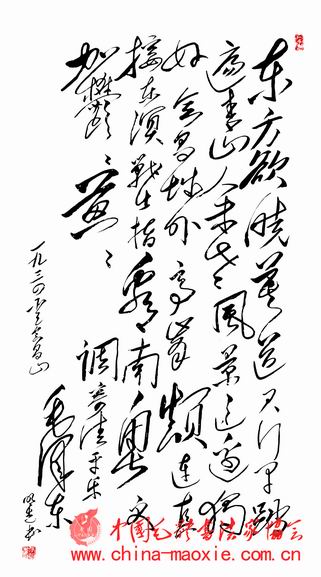 东方欲晓莫道君行早踏
遍青山人未老々風景这边独
好会昌城外高峰颠连直
接东溟战士指看南粤更
加鬱々葱々
调寄清平乐
一九三四年登会昌山
毛泽东
中国毛体书法家协会
www.china-maoxie.com.cn